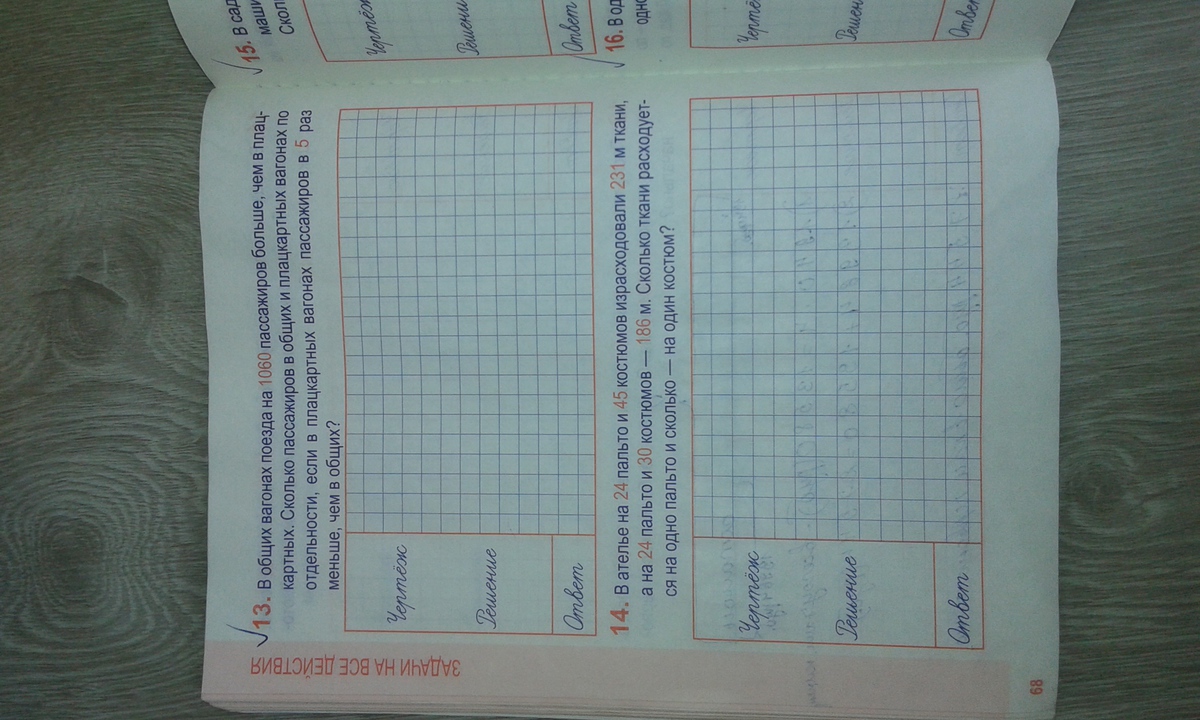 ЗАДАЧИ НА ВСЕ ДЕЙСТВИЯ
13. В общих вагонах поезда на 1060 пассажиров больше, чем в плац-
картных. Сколько пассажиров в общих и плацкартных вагонах по
отдельности, если в плацкартных вагонах пассажиров в 5 раз
меньше, чем в общих?
Чертёж
Решение
Ответ
14. В ателье на 24 пальто и 45 костюмов израсходовали 231 м ткани,
а на 24 пальто и 30 костюмов — 186 м. Сколько ткани расходует-
ся на одно пальто и сколько — на один костюм?
Чертёж
Решение
Ответ
68
15. В сад
маши
Скол
Чертёж
Решение
Ответ
16. В од
одно
Чертёж
Решен
Ответ